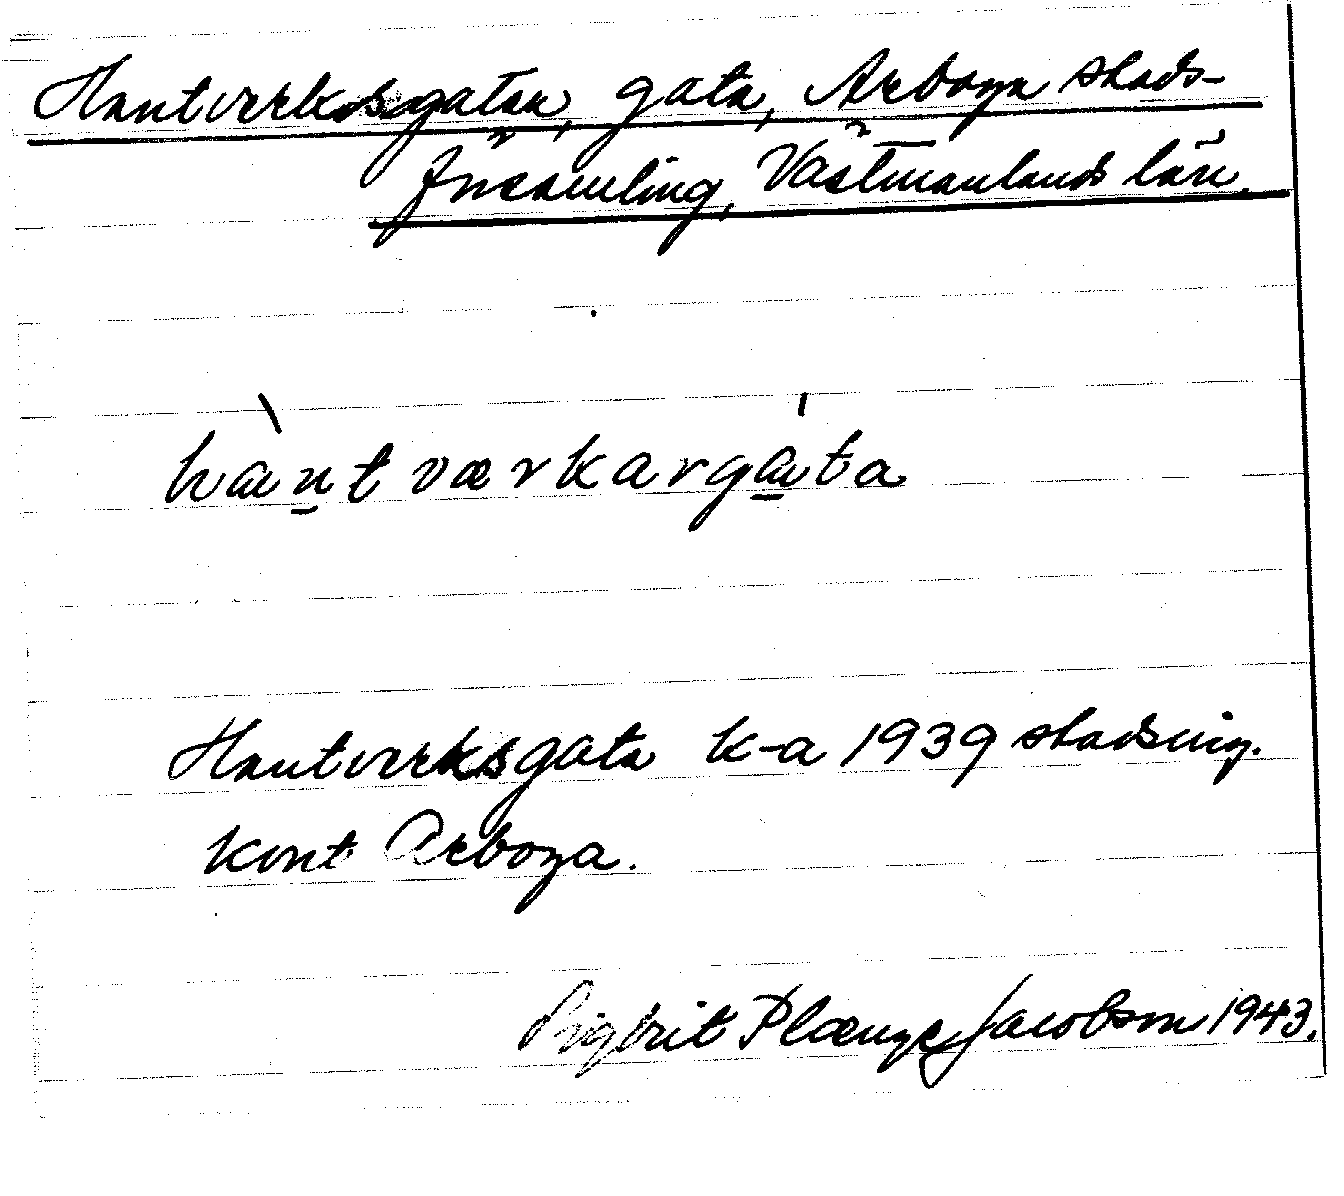 Hantverksgatan, gata, Arboga stads-
församling, Västmanlands län.
hàntværkargáta
Hantverksgata k-a 1939 stadsing.
kont Arboga.
Sigbrit Plænge Jacobson 1943.